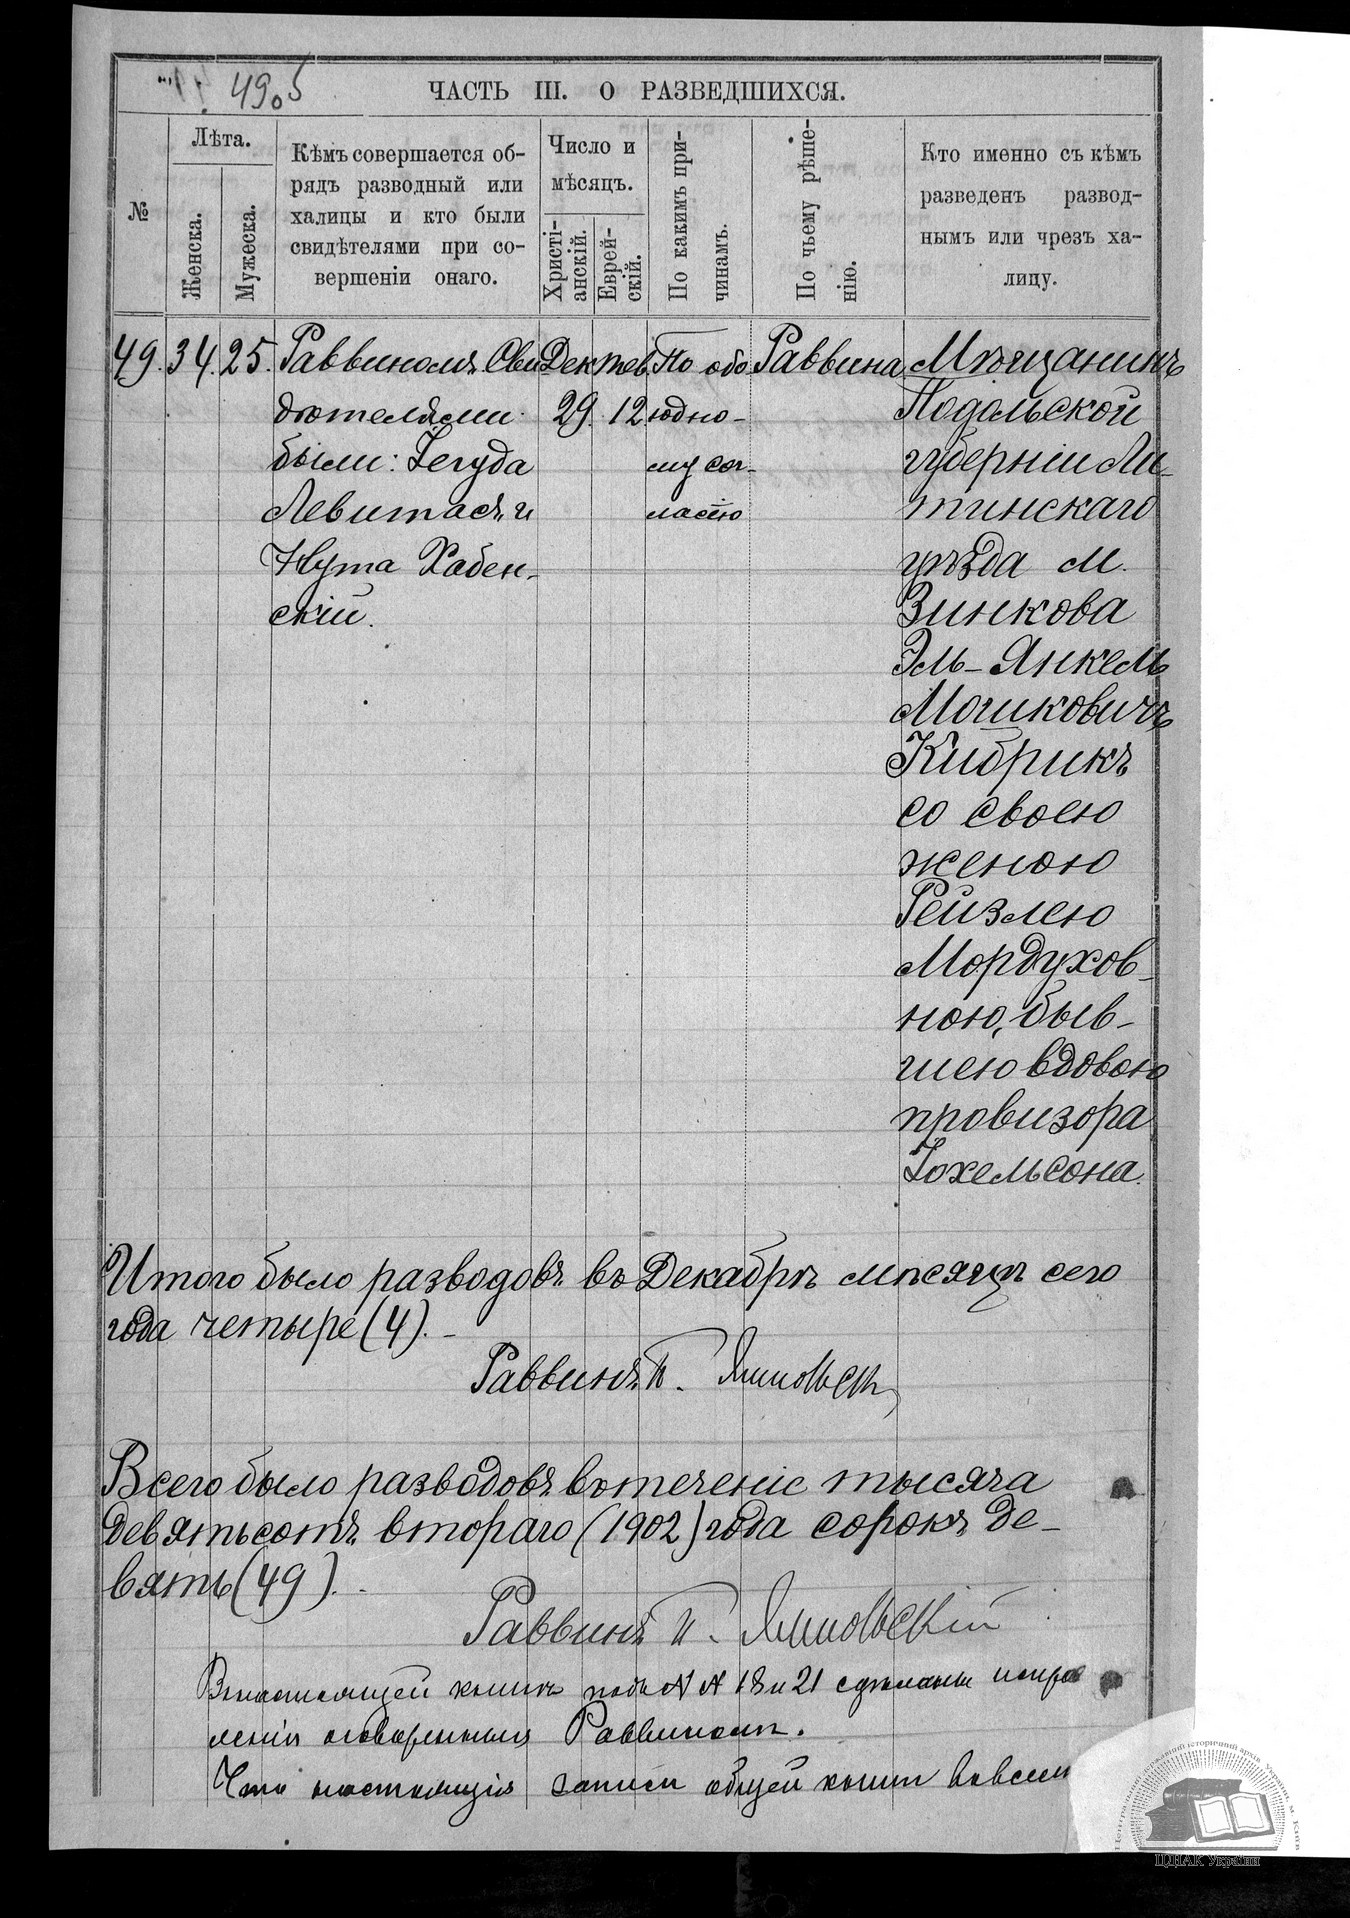 49 об
ЧАСТЬ III. О РАЗВЕДШИХСЯ.
№
Лѣта.
Женска.
Мужеска.
Кѣмъ совершается об-
рядъ разводный или
халицы и кто были
свидѣтелями при со-
вершеніи онаго.
Число и
мѣсяцъ.
Христі-
анскій.
Еврей-
скій.
По какимъ при-
чинамъ.
По чьему рѣше-
нію.
Кто именно съ кѣмъ
разведенъ развод-
нымъ или чрезъ ха-
лицу.
49. 34. 25.
Раввиномъ. Сви
дѣтелями
были: Іегуда
Левитасъ и
Нута Хабен-
скій.
Дек
29.
Тев.
12
По обо
юдно-
му сог-
ласію
Раввина
Мѣщанинъ
Подольской
губерніи Ли-
тинскаго
уѣзда м.
Зинкова
Эль-Янкель
Мошковичъ
Кибрикъ
со своею
женою
Рейзлею
Мордухов-
ною, быв-
шею вдовою
провизора
Іохельсона.
Итого было разводовъ въ Декабрѣ мѣсяцѣ сего
года четыре (4). -
Раввинъ П. Ямпольскій
Всего было разводовъ въ теченіе тысяча
девятьсотъ втораго (1902) года сорокъ де-
вять (49).
Раввинъ П. Ямпольскій
В настоящей книгѣ подъ N N 18 и 21 сдѣланы исправ
ленія оговоренныя Раввиномъ.
Что настоящія записи общей книги во всемъ
Центральний державний історичний архів України, м. Київ
ЦДІАК України